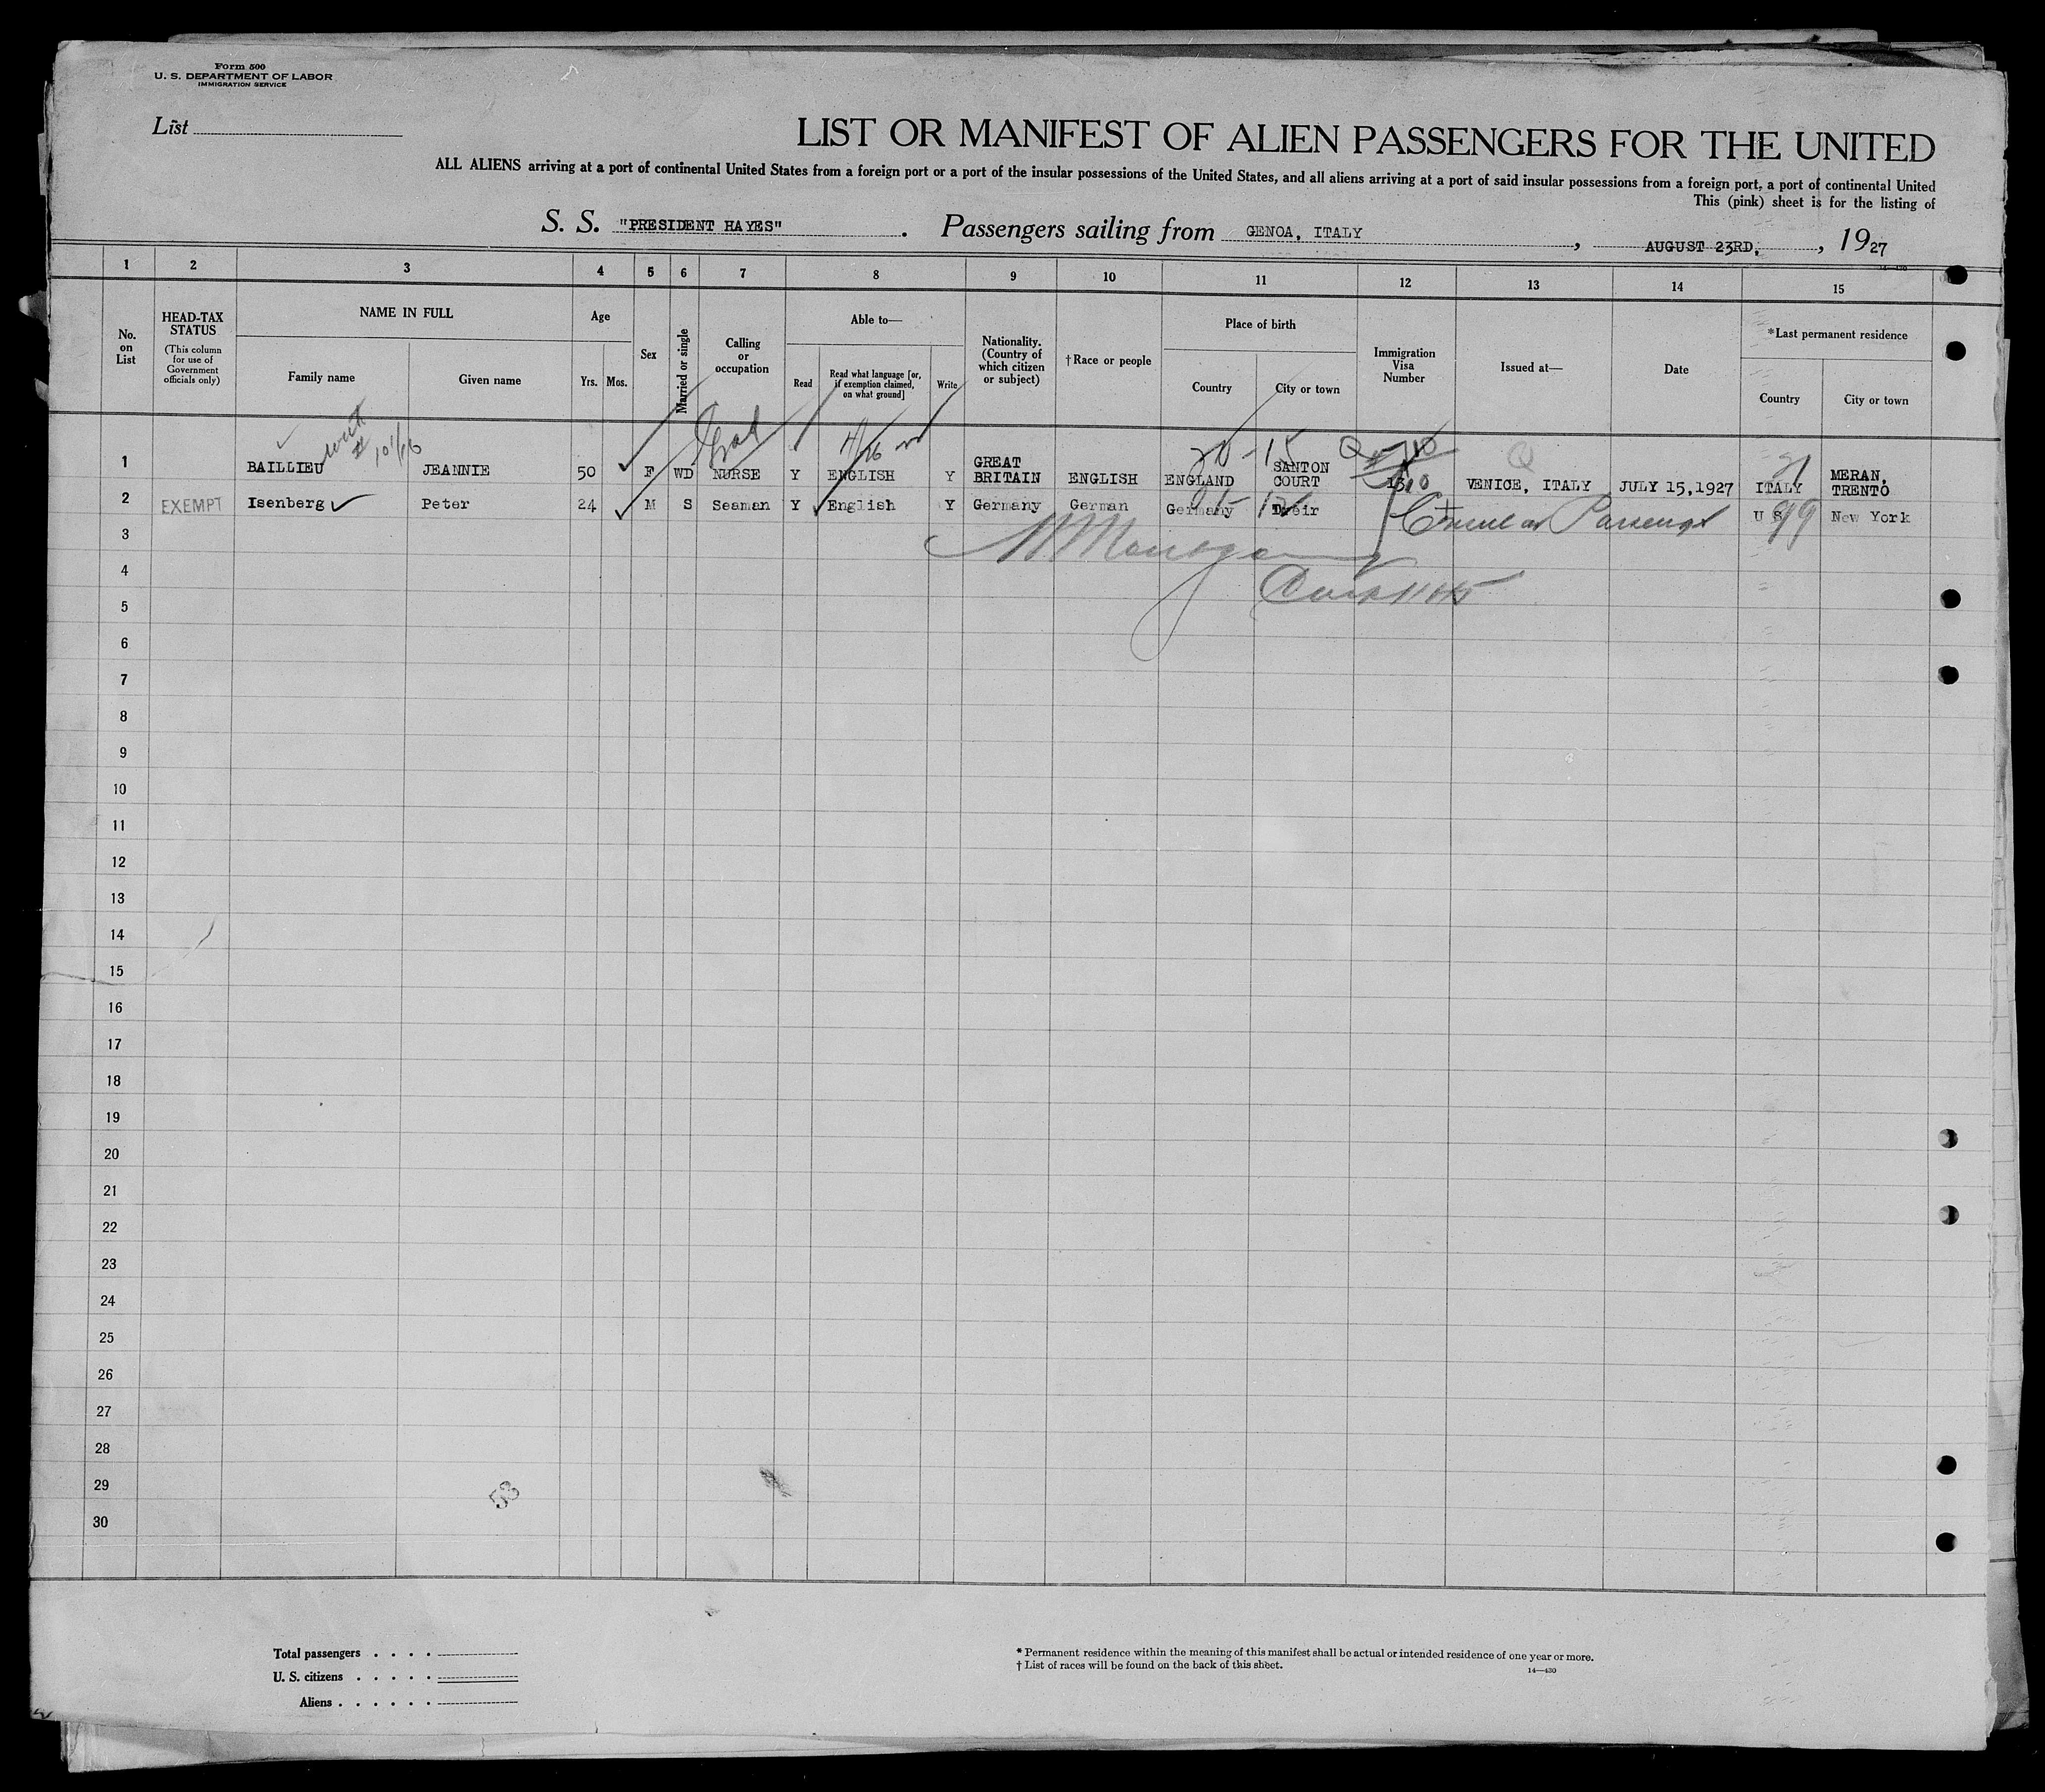 Form 500
U. S. DEPARTMENT OF LABOR
IMMIGRATION SERVICE
List
LIST OR MANIFEST OF ALIEN PASSENGERS FOR THE UNITED
ALL ALIENS arriving at a port of continental United States from a foreign port or a port of the insular possessions of the United States, and all aliens arriving at a port of said insular possessions from a foreign port, a port of continental United
This (pink) sheet is for the listing of
S. S. "PRESIDENT HAYES". Passengers sailing from GENOA, ITALY, AUGUST 23RD, , 1927
1 2 3 4 5 6 7 8 9 10 11 12 13 14 15
No. on List
HEAD-TAX STATUS
(This column for use of Government officials only)
NAME IN FULL
Family name
Given name
Age
Yrs. Mos.
Sex
Married or single
Calling or occupation
Able to—
Read
Read what language [or, if exemption claimed, on what ground]
Write
Nationality. (Country of which citizen or subject)
†Race or people
Place of birth
Country
City or town
Immigration Visa Number
Issued at—
Date
*Last permanent residence
Country
City or town
20-15
1 BAILLIEU JEANNIE 50 F WD NURSE Y ENGLISH Y GREAT BRITAIN ENGLISH ENGLAND SANTON COURT VENICE, ITALY JULY 15,1927 ITALY MERAN, TRENTO
2 EXEMPT Isenberg Peter 24 M S Seaman Y English Y Germany German Germany U S New York
99
3
4
5
6
7
8
9
10
11
12
13
14
15
16
17
18
19
20
21
22
23
24
25
26
27
28
29
30
53
Total passengers . . . .
U. S. citizens . . . . .
Aliens . . . . . .
* Permanent residence within the meaning of this manifest shall be actual or intended residence of one year or more.
† List of races will be found on the back of this sheet.
14—430